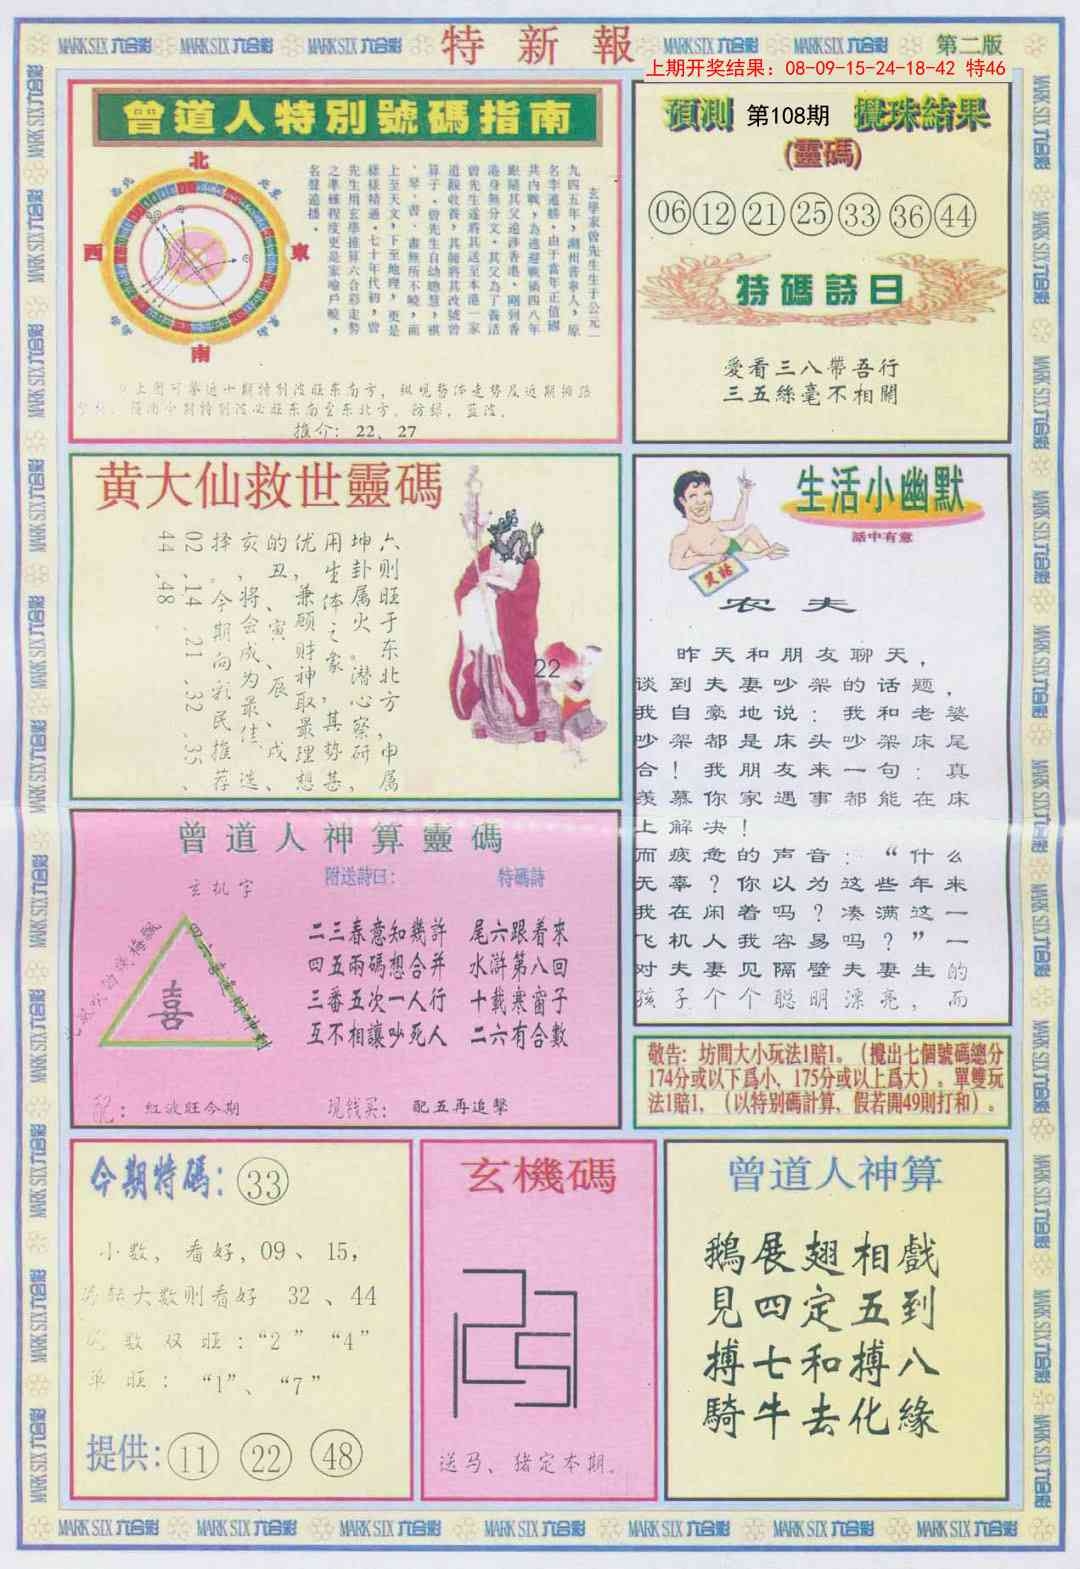 MARK SIX 六合彩 MARK SIX 六合彩 MARK SIX 六合彩 特新報 MARK SIX 六合彩 MARK SIX 六合彩 第二版
上期开奖结果：08-09-15-24-18-42 特46
曾道人特別號碼指南
北
西
東
南
玄學家曾先生生于公元一
九四五年，潮州普寧人，原
名李道勝。由于當年正值國
共內戰，為逃避戰禍四八年
跟隨其父逃涉香港，剛到香
港身無分文，其父為了養活
曾先生遂將其送至本港一家
道觀收養，其師將其改號曾
算子。曾先生自幼聰慧，棋
、琴、書、畫無所不曉，而
上至天文，下至地理，更是
樣樣精通，七十年代初，曾
先生用玄學推算六合彩走勢
之準確程度更是家喻戶曉，
名聲遠播。
上图可掌近十期特别波旺东南方，纵观势体走势及近期
今期特别波必旺东南至东北方。防绿，蓝波。
推介：22、27
預測 第108期 攪珠結果
(靈碼)
06 12 21 25 33 36 44
特碼詩曰
愛看三八帶吾行
三五絲毫不相關
黄大仙救世靈碼
六则旺于东北方，申属
坤卦属火。潜心察研，
用生体之象，其势甚
优，兼顾财神取最理想
的丑、寅、辰、戌、
亥，将会成为最佳选
择。今期向彩民推荐
02.14.21.32.35、
44.48
22
生活小幽默
話中有意
笑話
农夫
昨天和朋友聊天，
谈到夫妻吵架的话题，
我自豪地说：我和老婆
吵架都是床头吵架床尾
合！我朋友来一句：真
羡慕你家遇事都能在床
上解决！
而疲惫的声音：“什么
无辜？你以为这些年来
我在闲着吗？凑满这一
飞机人我容易吗？”一
对夫妻见隔壁夫妻生的
孩子个个聪明漂亮，而
曾道人神算靈碼
玄机字
附送詩曰：
特碼詩
喜
二三春意知幾許
四五兩碼想合并
三番五次一人行
互不相讓吵死人
尾六跟着來
水滸第八回
十載寒窗子
二六有合數
配：红波旺今期
现钱买：配五再追擊
敬告：坊間大小玩法1賠1。（攪出七個號碼總分
174分或以下爲小，175分或以上爲大）。單雙玩
法1賠1，（以特别碼計算，假若開49則打和）。
今期特碼：33
小数，看好，09、15，
大数则看好 32、44
数双旺：“2” “4”
单旺：“1”、“7”
提供：11 22 48
玄機碼
送马、猪定本期。
曾道人神算
鵝展翅相戲
見四定五到
搏七和搏八
騎牛去化緣
MARK SIX 六合彩 MARK SIX 六合彩 MARK SIX 六合彩 MARK SIX 六合彩 MARK SIX 六合彩 MARK SIX 六合彩 MARK SIX 六合彩